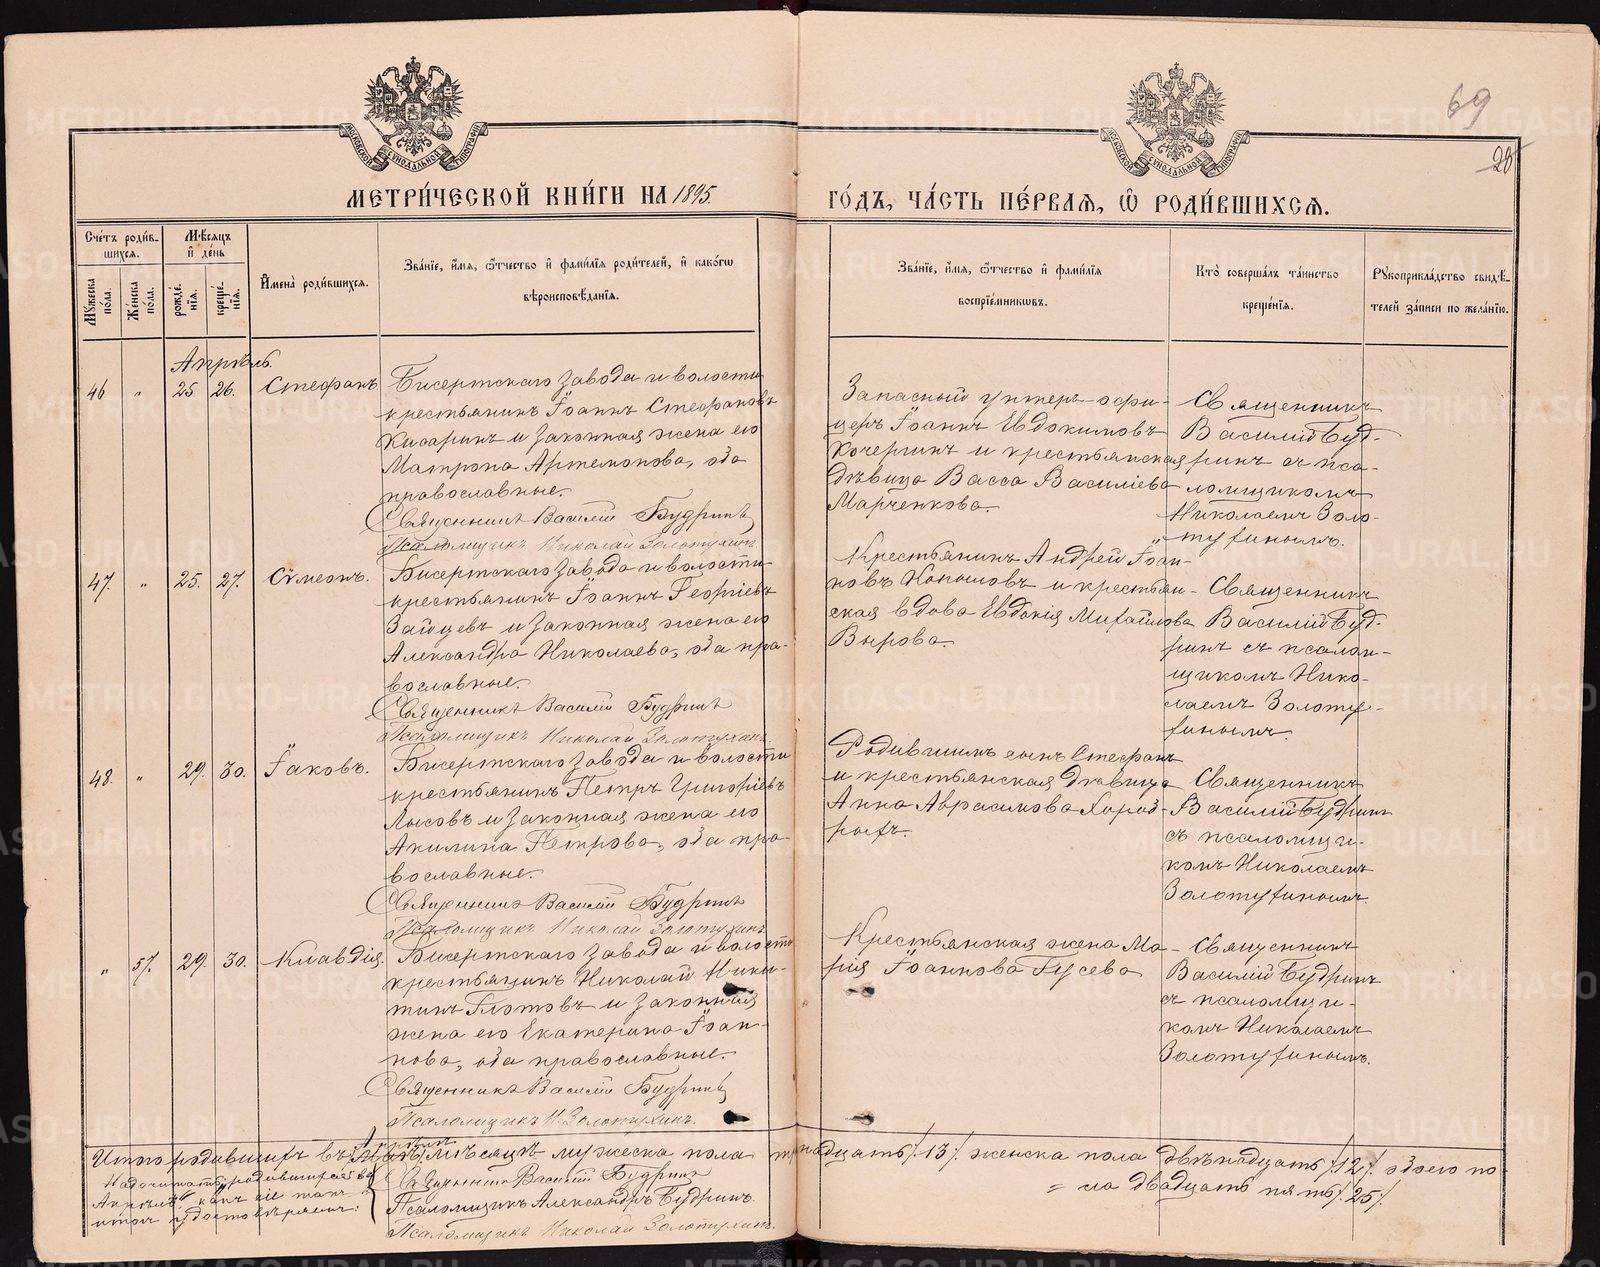 69
28
МОСКОВСКОЙ СѴНОДАЛЬНОЙ ТИПОГРАФІИ
МОСКОВСКОЙ СѴНОДАЛЬНОЙ ТИПОГРАФІИ
МЕТРИ́ЧЕСКОЙ КНИ́ГИ НА 1895.
ГО́ДЪ, ЧА́СТЬ ПЕ́РВАЯ, Ѡ РОДИ́ВШИХСЯ.
Сче́тъ роди́в-
шихся.
Мꙋ́жеска
по́ла.
Же́нска
по́ла.
Мѣ́сяцъ
и де́нь
рожде́-
нїя.
креще́-
нїя.
И҆мена̀ роди́вшихся.
Зва́нїе, и҆́мя, ѻ҆́тчество и҆ фами́лїя роди́телей, и҆ како́гѡ
вѣроисповѣ́данїя.
Зва́нїе, и҆́мя, ѻ҆́тчество и҆ фами́лїя
воспрїе́мникѡвъ.
Кто̀ соверша́лъ та́инство
креще́нїя.
Рꙋкоприкла́дство свидѣ́-
телей за́писи по жела́нїю.
Апрѣль.
46 „ 25. 26. Стефанъ.
Бисертскаго завода и волости
крестьянинъ Іоаннъ Стефановъ
Кисаринъ и законная жена его
Матрона Артемонова, оба
православные.
Священникъ Василій Будринъ
Псаломщикъ Николай Золотухинъ
Запасный унтеръ-офи-
церъ Іоаннъ Евдокимовъ
Кочергинъ и крестьянская
дѣвица Васса Василіева
Марченкова.
Священникъ
Василій Буд-
ринъ съ пса-
ломщикомъ
Николаемъ Золо-
тухинымъ.
47. „ 25. 27. Сѵмеонъ.
Бисертскаго завода и волости
крестьянинъ Іоаннъ Георгіевъ
Зайцевъ и законная жена его
Александра Николаева, оба пра-
вославные.
Священникъ Василій Будринъ
Псаломщикъ Николай Золотухинъ
Крестьянинъ Андрей Іоан-
новъ и крестьян-
ская вдова Евдокія Михайлова
Вырова.
Священникъ
Василій Буд-
ринъ съ псалом-
щикомъ Нико-
лаемъ Золоту-
хинымъ.
48. „ 29. 30. Іаковъ.
Бисертскаго завода и волости
крестьянинъ Петръ Григоріевъ
Лысовъ и законная жена его
Акилина Петрова, оба пра-
вославные.
Священникъ Василій Будринъ
Псаломщикъ Николай Золотухинъ
Родившимъ сынъ Стефанъ
и крестьянская дѣвица
Анна Аврамова
Священникъ
Василій Будринъ
съ псаломщи-
комъ Николаемъ
Золотухинымъ.
„ 57. 29. 30. Клавдія.
Бисертскаго завода и волости
крестьянинъ Николай Ники-
тинъ Глотовъ и законная
жена его Екатерина Іоан-
нова, оба православные.
Священникъ Василій Будринъ
Псаломщикъ Н. Золотухинъ.
Крестьянская жена Ма-
рія Іоаннова Гусева
Священникъ
Василій Будринъ
съ псаломщи-
комъ Николаемъ
Золотухинымъ.
Апрѣлѣ
Итого родившихъ въ мѣсяцѣ мужеска пола тринадцать /13/ женска пола двѣнадцать /12/ обоего по-
= ла двадцать пять /25/
Апрѣлѣ
итогъ удостовѣряемъ:
Священникъ Василій Будринъ
Псаломщикъ Александръ Будринъ.
Псаломщикъ Николай Золотухинъ.
METRIKI.GASO-URAL.RU